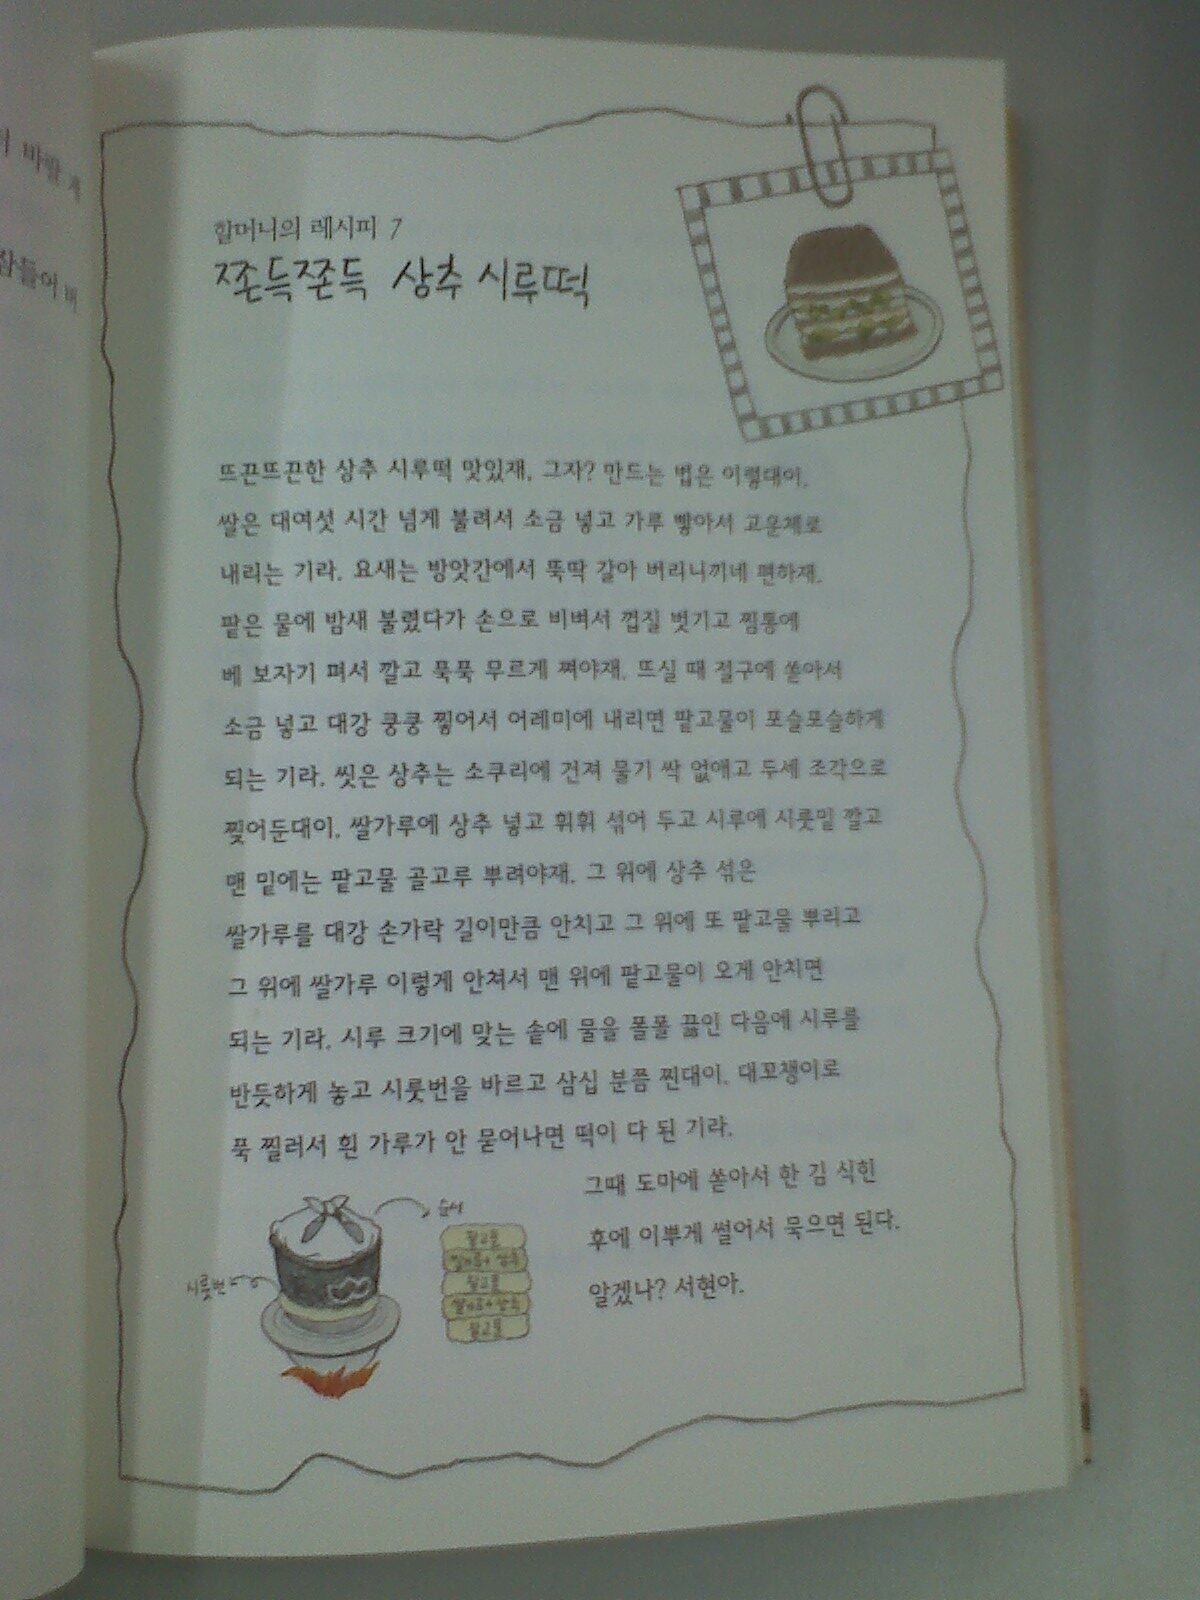 할머니의 레시피 7
쫀득쫀득 상추 시루떡
뜨끈뜨끈한 상추 시루떡 맛있재, 그자? 만드는 법은 이렇대이.
쌀은 대여섯 시간 넘게 불려서 소금 넣고 가루 빻아서 고운체로
내리는 기라. 요새는 방앗간에서 뚝딱 갈아 버리니끼네 편하재.
팥은 물에 밤새 불렸다가 손으로 비벼서 껍질 벗기고 찜통에
베 보자기 펴서 깔고 푹푹 무르게 쪄야재. 뜨실 때 절구에 쏟아서
소금 넣고 대강 쿵쿵 찧어서 어레미에 내리면 팥고물이 포슬포슬하게
되는 기라. 씻은 상추는 소쿠리에 건져 물기 싹 없애고 두세 조각으로
찢어둔대이. 쌀가루에 상추 넣고 휘휘 섞어 두고 시루에 시룻밑 깔고
맨 밑에는 팥고물 골고루 뿌려야재. 그 위에 상추 섞은
쌀가루를 대강 손가락 길이만큼 안치고 그 위에 또 팥고물 뿌리고
그 위에 쌀가루 이렇게 안쳐서 맨 위에 팥고물이 오게 안치면
되는 기라. 시루 크기에 맞는 솥에 물을 폴폴 끓인 다음에 시루를
반듯하게 놓고 시룻번을 바르고 삼십 분쯤 찐대이. 대꼬챙이로
푹 찔러서 흰 가루가 안 묻어나면 떡이 다 된 기라.
그때 도마에 쏟아서 한 김 식힌
후에 이뿌게 썰어서 묵으면 된다.
알겠나? 서현아.
순서
팥고물
쌀가루+상추
시룻번
팥고물
쌀가루+상추
팥고물